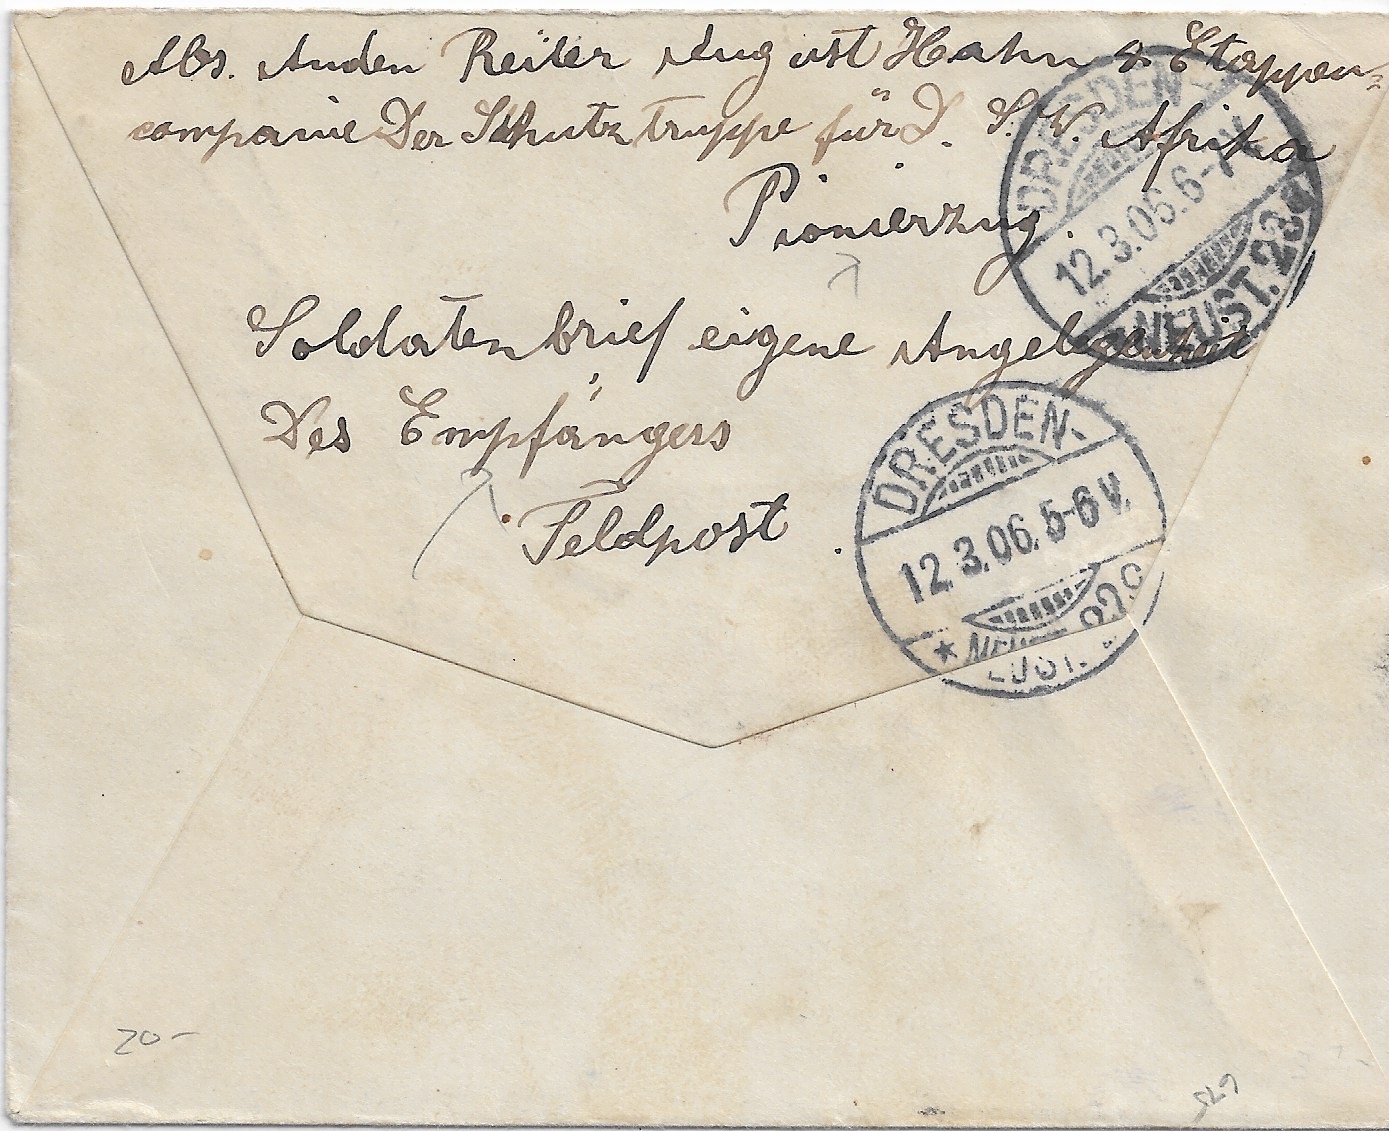 Abs. Anden Reiter August Hahn 2 Etappen=
companie Der Schutztruppe für D. S. W. Afrika
Pionierzug.
Soldatenbrief eigene Angelegenheit
Des Empfängers
Feldpost
DRESDEN-
12.3.06.6-7V.
NEUST. 23
DRESDEN-
12.3.06.5-6V.
* NEUST.
20-